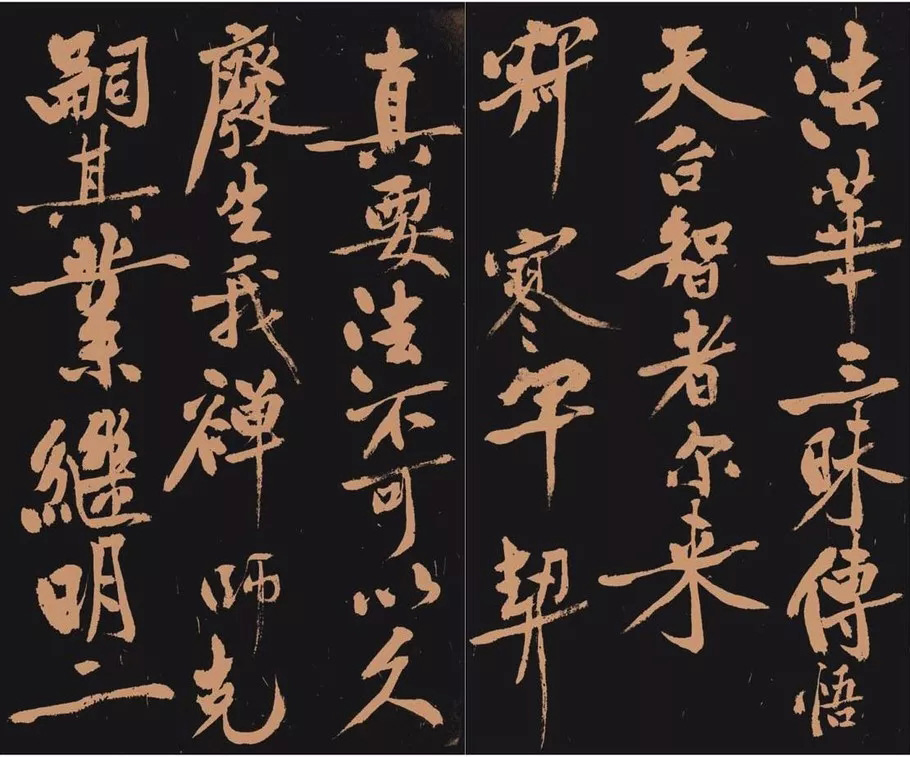 法華三昧傳悟
天台智者尔来
寂寥罕契
真要法不可以久
廢生我禅師克
嗣其業継明二